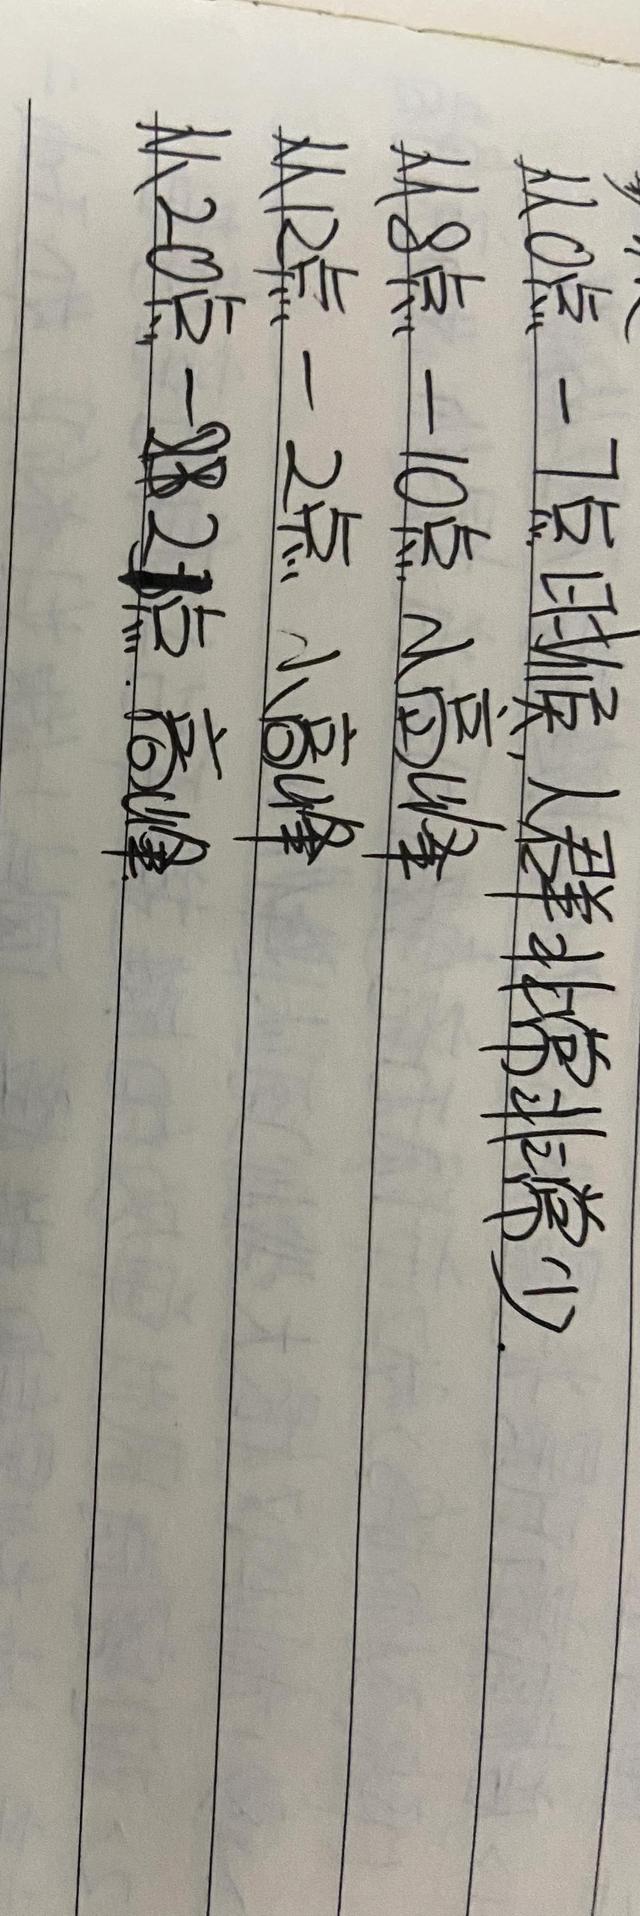 从0点-7点时候,人群非常非常少.
从8点-10点 小高峰
从12点-2点. 小高峰
从20点-21点. 高峰.